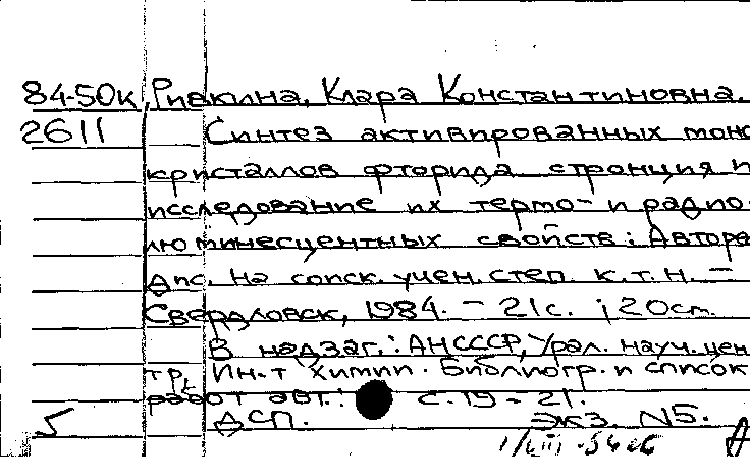 84-50к Ривкина, Клара Константиновна.
2611 Синтез активированных моно
кристаллов фторида стронция и
исследование их термо- и радио-
люминесцентных свойств: Авторе
дис. на соиск. учен. степ. к.т.н. —
Свердловск, 1984. - 21с. ; 20см.
В надзаг.: АНСССР, Урал. науч. цен
тр, Ин-т химии. Библиогр. и список
работ авт.: с. 19-21.
ДСП. Экз. N5.